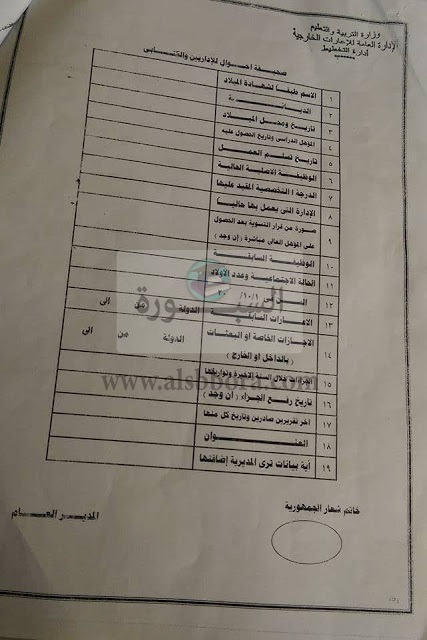 وزارة التربية والتعليم
الإدارة العامة للإعارات الخارجية
إدارة التخطيط
صحيفة احوال للإداريين والفنيين
١ الاسم طبقاً لشهادة الميلاد
٢ الديانة
٣ تاريخ ومحل الميلاد
٤ المؤهل الدراسى وتاريخ الحصول عليه
٥ تاريخ تسلم العمل
٦ الوظيفة الاصلية الحالية
٧ الدرجة التخصصية المقيد عليها
٨ الإدارة التى يعمل بها حالياً
٩ صورة من قرار التسوية بعد الحصول
على المؤهل العالى مباشرة (إن وجد)
١٠ الوظيفة السابقة
١١ الحالة الاجتماعية وعدد الاولاد
١٢ السن فى ١/١٠/ ٢٠
١٣ الاعارات السابقة الدولة من الى
١٤ الاجازات الخاصة او البعثات الدولة من الى
(بالداخل او الخارج)
١٥ الجزاءات خلال السنة الاخيرة وتواريخها
١٦ تاريخ رفع الجزاء (ان وجد)
١٧ اخر تقريرين صادرين وتاريخ كل منها
١٨ العنوان
١٩ أية بيانات ترى المديرية إضافتها
السبورة
www.alsbbora.com
خاتم شعار الجمهورية
المدير العام